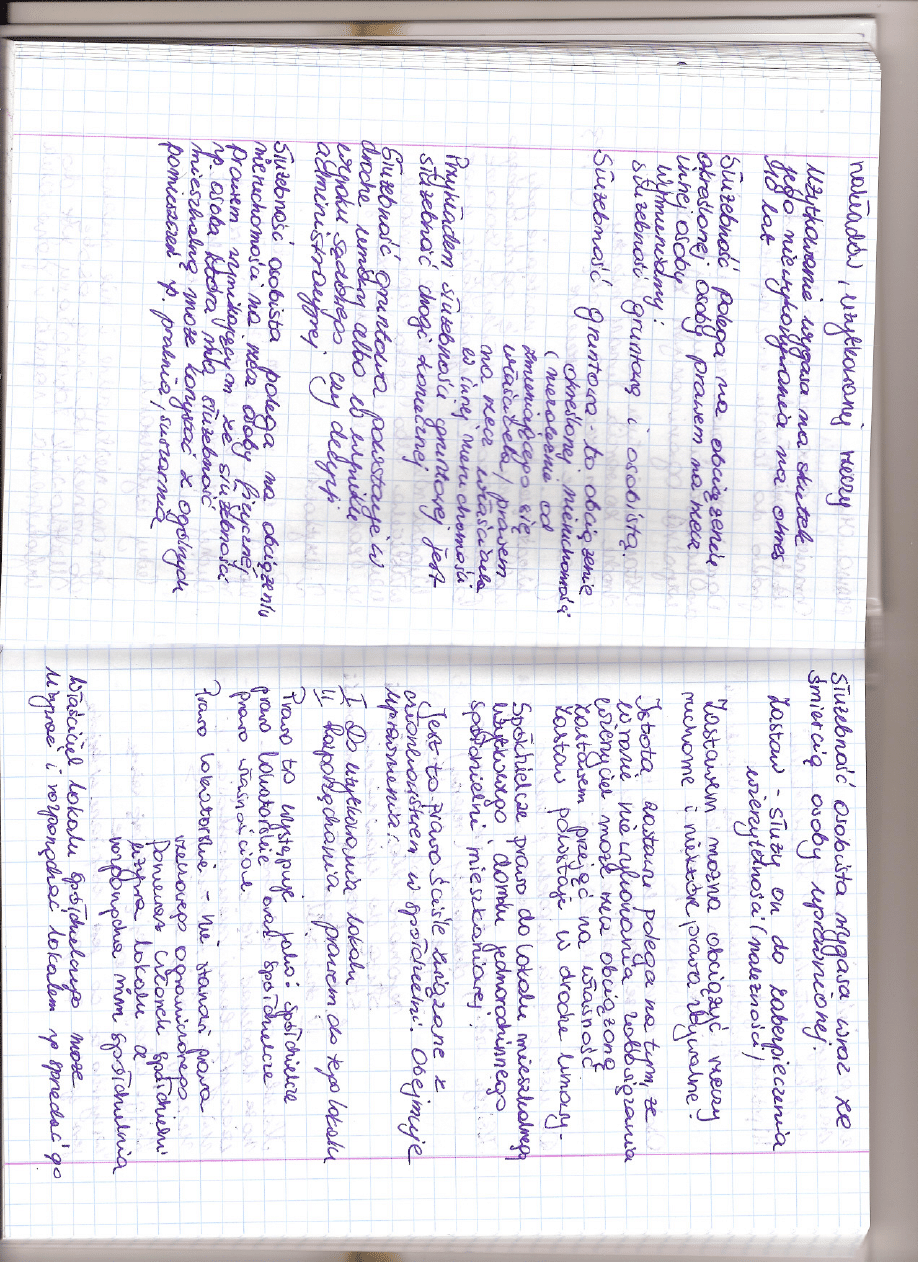 nakładów, użytkowanej rzeczy
Użytkowanie wygasa na skutek
jego niewykonywania na okres
10 lat
Służebność polega na obciążeniu
określonej osoby prawem na rzecz
innej osoby
Wymieniamy:
służebność gruntową i osobistą.
Służebność gruntowa - to obciążenie
określonej nieruchomości
(niezależnie od
zmieniającego się
właściciela) prawem
na rzecz właściciela
w innej nieruchomości
Przykładem służebności gruntowej jest
służebność drogi koniecznej
Służebność gruntowa powstaje w
drodze umowy albo w wyniku
wyroku sądowego czy decyzji
administracyjnej
Służebność osobista polega na obciążeniu
nieruchomości na rzecz osoby fizycznej
prawem wynikającym ze służebności
np. osoba która ma służebność
mieszkalną może korzystać z ogólnych
pomieszczeń np. pralnia, suszarnia
Służebność osobista wygasa wraz ze
śmiercią osoby uprawnionej.
Zastaw - służy on do zabezpieczenia
wierzytelności (należności)
Zastawem można obciążyć rzeczy
ruchome i niektóre prawa zbywalne.
Istotą zastawu polega na tym, że
w razie nie wykonania zobowiązania
wierzyciel może rzecz obciążoną
zastawem przejąć na własność
Zastaw powstaje w drodze umowy.
Spółdzielcze prawo do lokalu mieszkalnego
użytkowego i domu jednorodzinnego
spółdzielni mieszkaniowej.
Jest to prawo ściśle związane z
członkostwem w spółdzielni. Obejmuje
uprawnienia:
I Do użytkowania lokalu
II Rozporządzania prawem do tego lokalu
Prawo to występuje jako: spółdzielcze
prawo lokatorskie oraz spółdzielcze
prawo własnościowe
Prawo lokatorskie - nie stanowi prawa
rzeczowego ograniczonego
Ponieważ członek spółdzielni
używa lokalu a
rozporządza nim spółdzielnia
Właściciel lokalu spółdzielczego może
używać i rozporządzać lokalem np sprzedać go